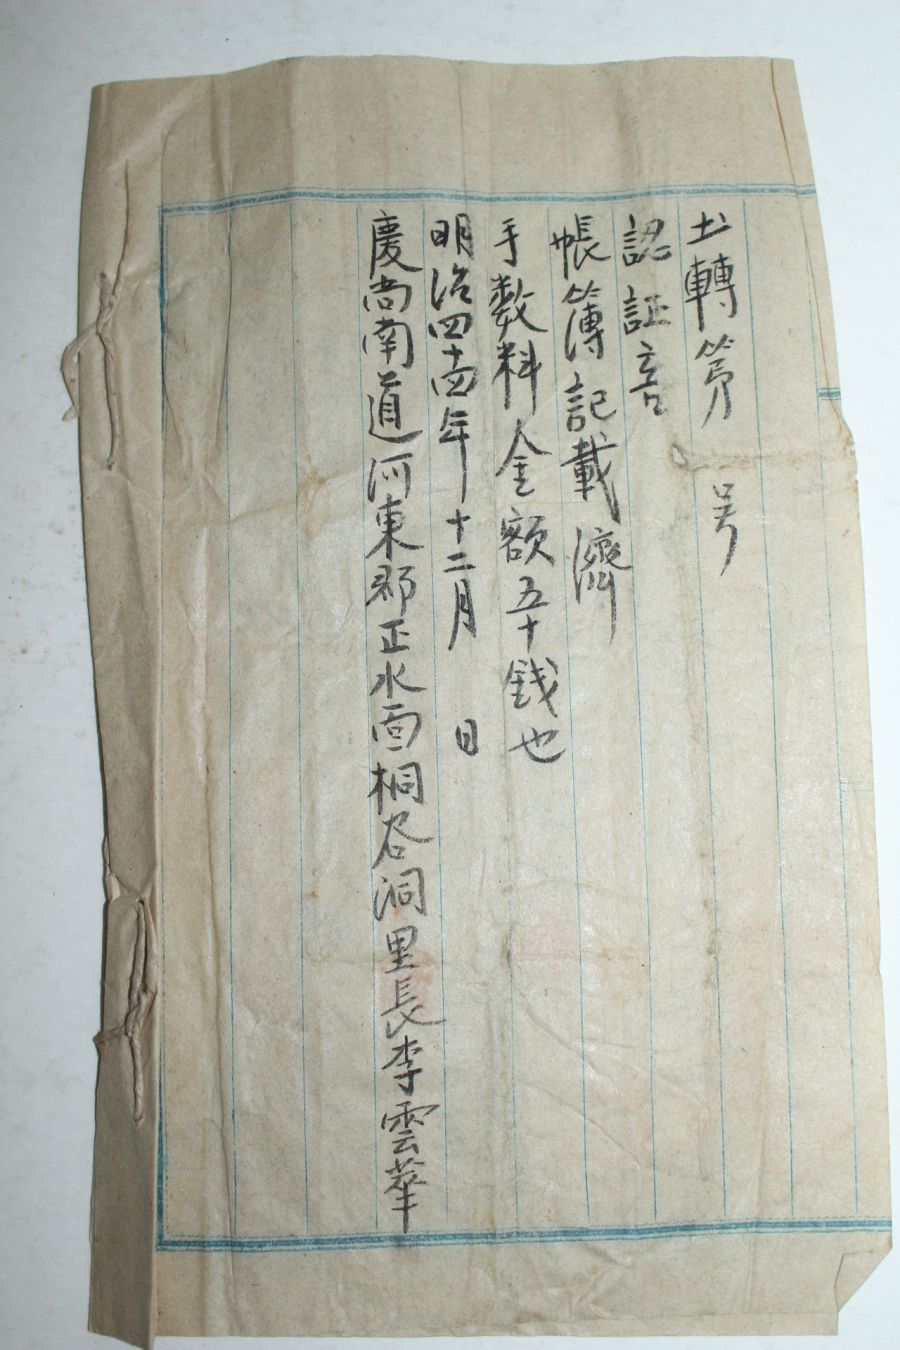 土轉第 号
認証書
帳簿記載濟
手数料金額五十銭也
明治四十四年十二月 日
慶尚南道河東郡正水面桐谷洞里長李雲華